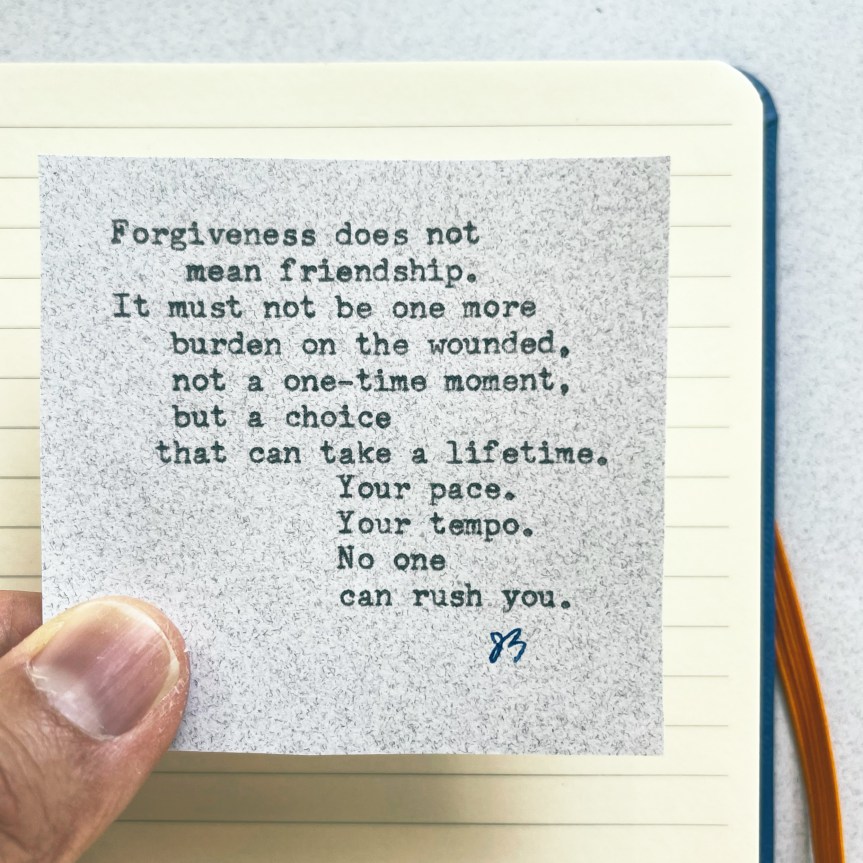 Forgiveness does not
mean friendship.
It must not be one more
burden on the wounded,
not a one-time moment,
but a choice
that can take a lifetime.
Your pace.
Your tempo.
No one
can rush you.